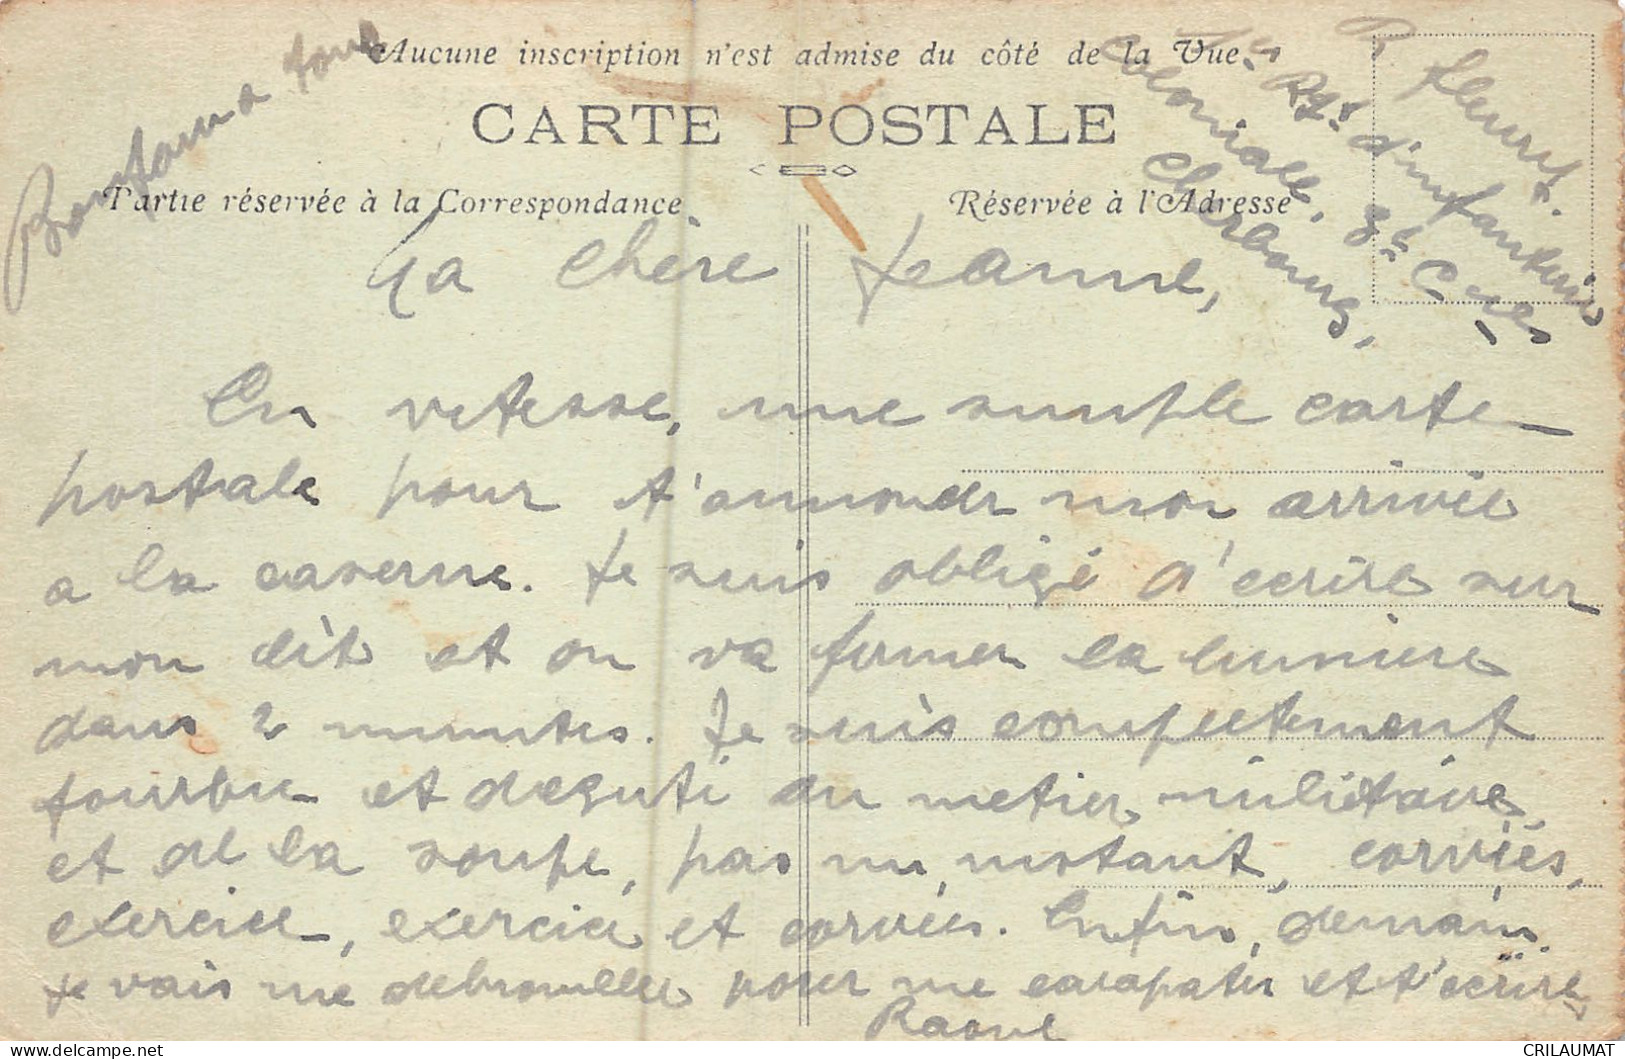 Aucune inscription n'est admise du côté de la Vue
CARTE POSTALE
Partie réservée à la Correspondance
Réservée à l'Adresse
R fleury.
1er Rgt d'infanterie
Coloniale, 3e Cnies
Cherbourg,
Bonjour a tous
Ma chère Jeanne,
En vitesse, une simple carte
postale pour t'annoncer mon arrivée
a la caserne. Je suis obligé d'ecrire sur
mon lit et on va fermer la lumiere
dans 2 minutes. Je suis completement
fourbu et degouté du metier militaire,
et de la soupe, pas un instant, corvées,
exercice, exercice et corvées. Enfin, demain
je vais me debrouiller pour me carapater et t'ecrire
Raoul
CRILAUMAT